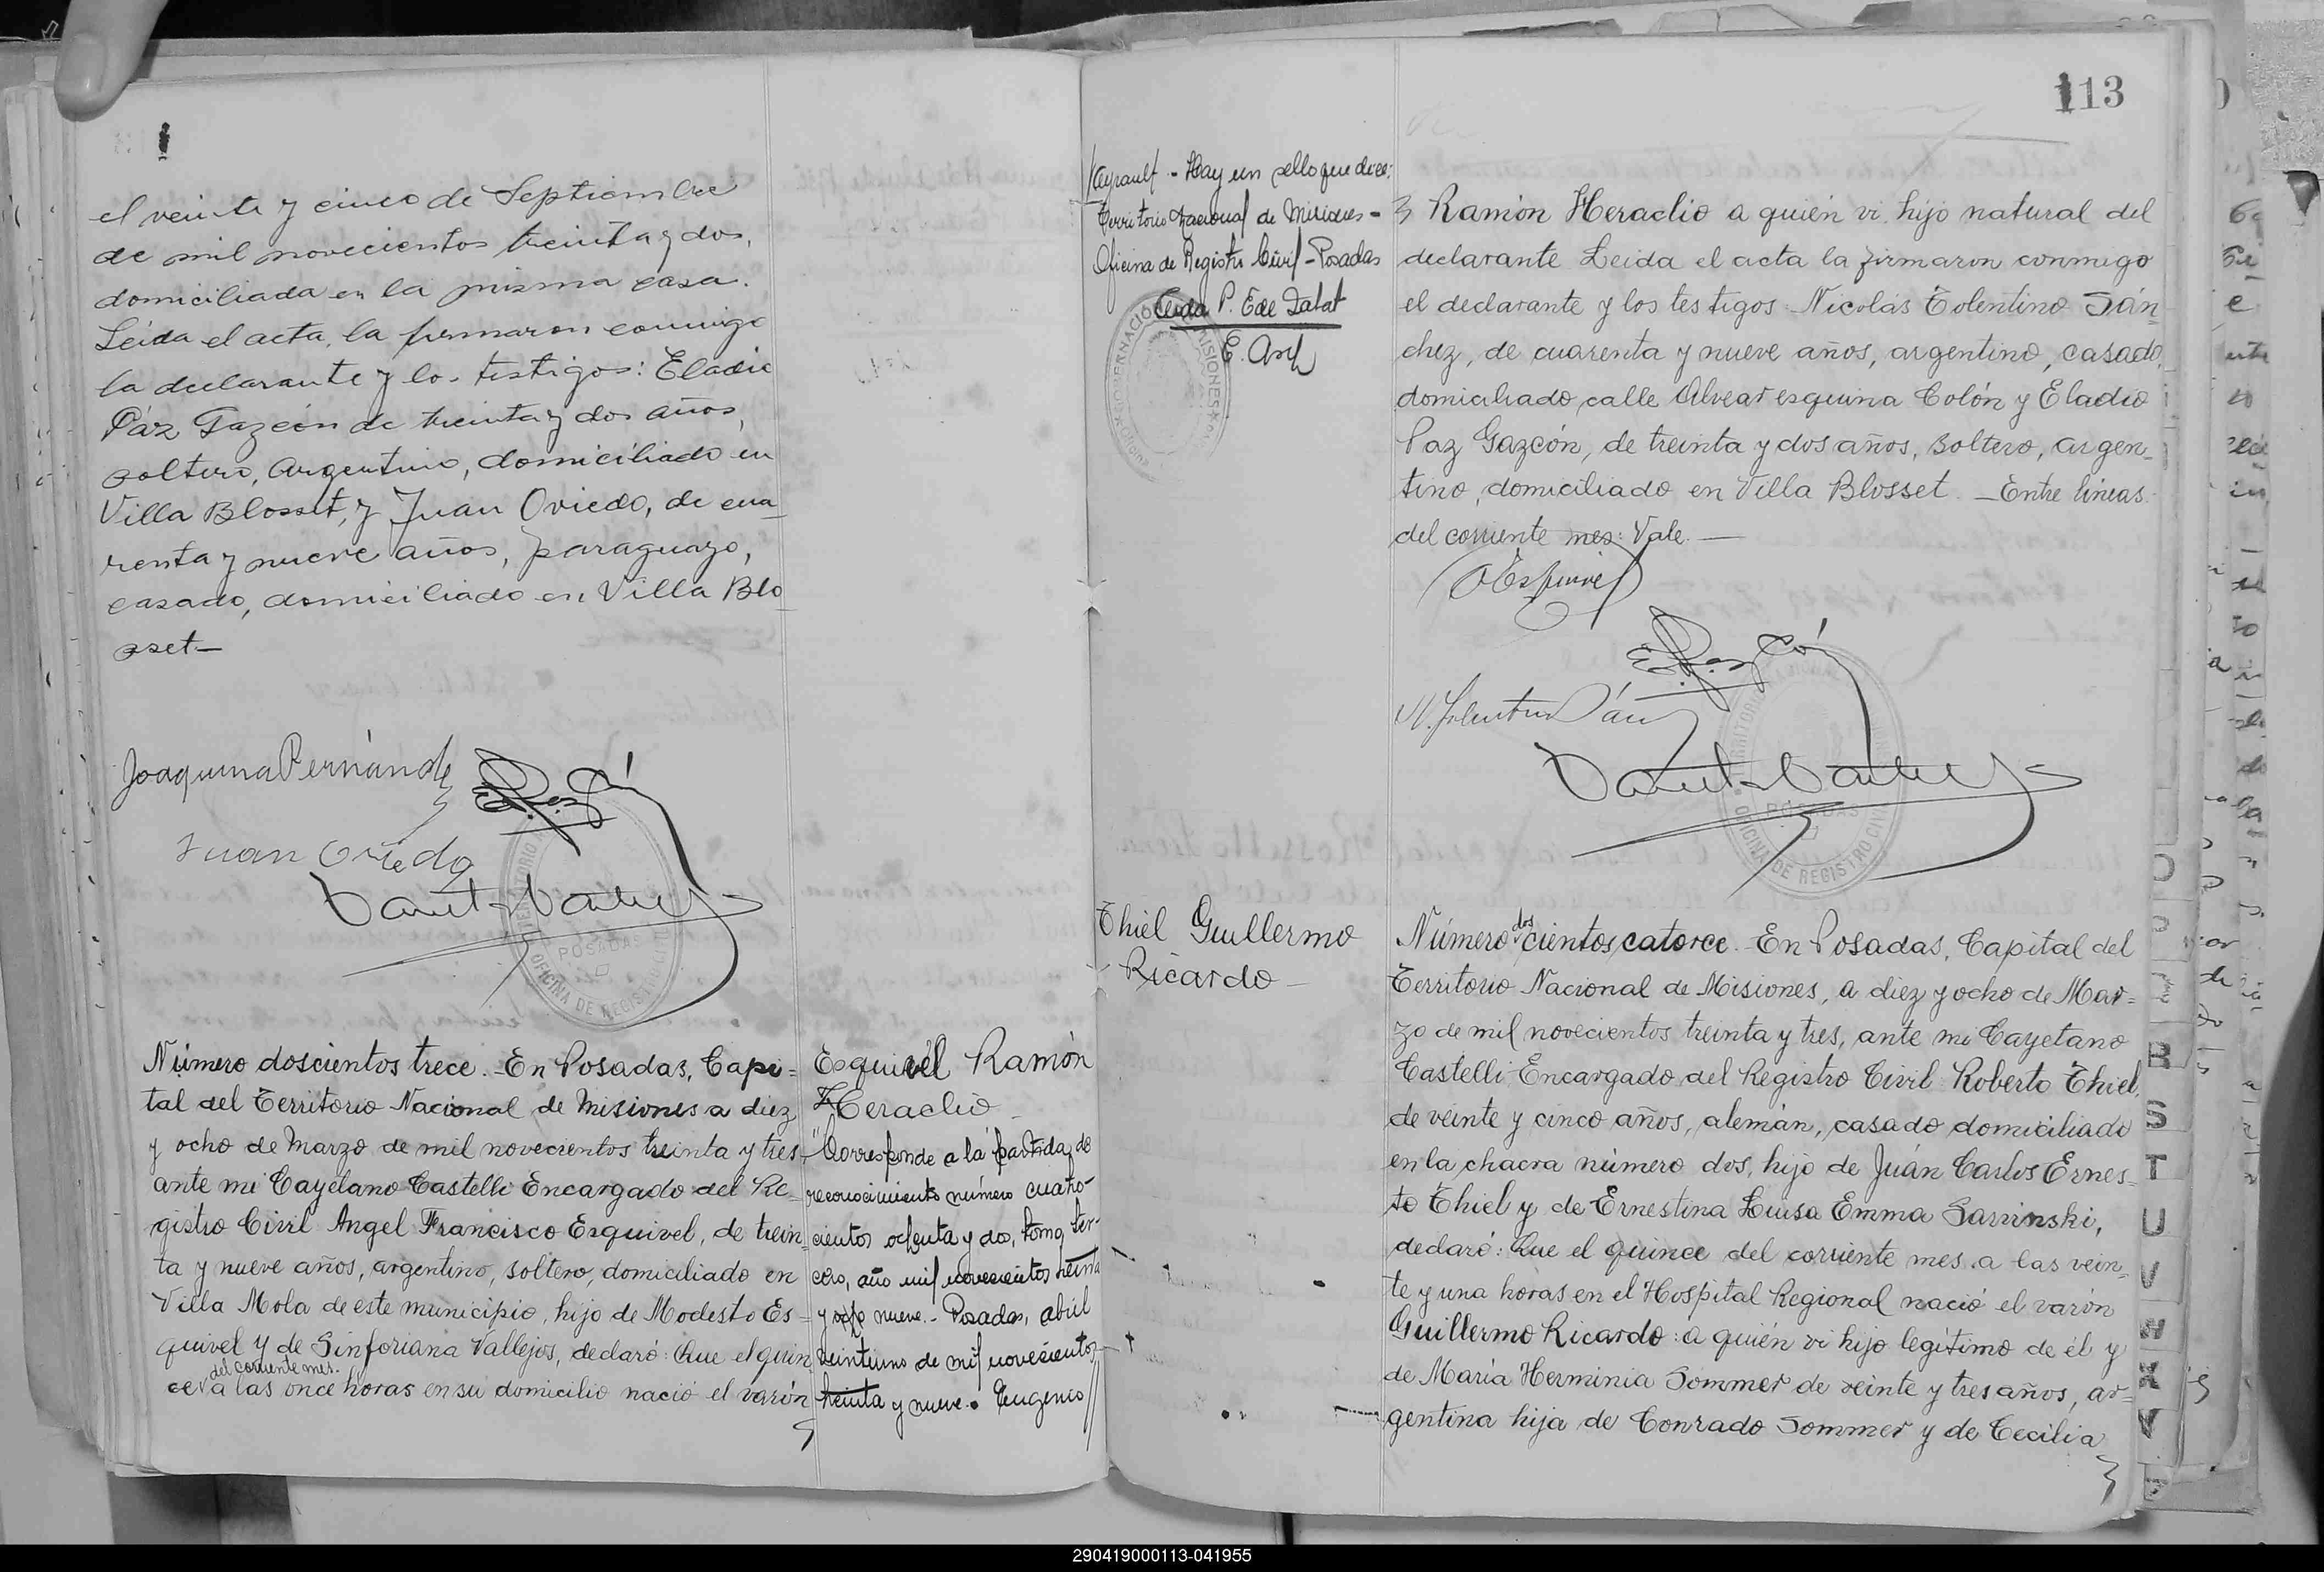 el veinte y cinco de Septiembre
de mil novecientos treinta y dos,
domiciliada en la misma casa.
Leida el acta, la firmaron conmigo
la declarante y los testigos: Eladio
Páz Gazcón de treinta y dos años,
soltero, Argentino, domiciliado en
Villa Blosset, y Juan Oviedo, de cua-
renta y nueve años, paraguayo,
casado, domiciliado en Villa Blo
sset—
Joaquina Fernández
Juan Oviedo
POSADAS
OFICINA DE REGISTRO CIVIL
Número doscientos trece. - En Posadas, Capi=
tal del Territorio Nacional de Misiones a diez
y ocho de Marzo de mil novecientos treinta y tres,
ante mi Cayetano Castelli Encargado del Re-
gistro Civil Angel Francisco Esquivel, de trein-
ta y nueve años, argentino, soltero, domiciliado en
Villa Mola de este municipio, hijo de Modesto Es=
quivel y de Sinforiana Vallejos, declaró: Que el quin
del corriente mes.
ce a las once horas en su domicilio nació el varón
Esquivel Ramón
Heraclio
"Corresponde a la partida de
reconocimiento número cuatro-
cientos ochenta y dos, tomo ter-
cero, año mil novecientos treinta
y ocho nueve.- Posadas, abril
veintiuno de mil novecientos
treinta y nueve. Eugenio
113
Kayrault - Hay un sello que dice:
Territorio Nacional de Misiones =
Oficina de Registro Civil - Posadas
E. Arf
Ramón Heraclio a quién vi, hijo natural del
declarante Leida el acta la firmaron conmigo
el declarante y los testigos: Nicolás Tolentino Sán-
chez, de cuarenta y nueve años, argentino, casado,
domiciliado calle Alvear esquina Colón y Eladio
Paz Gazcón, de treinta y dos años, soltero, argen-
tino, domiciliado en Villa Blosset. - Entre lineas
del corriente mes: Vale. —
AEsquivel
N. Tolentino Sán
POSADAS
OFICINA DE REGISTRO CIVIL
Thiel Guillermo
Ricardo -
dos
Número cientos catorce. - En Posadas, Capital del
Territorio Nacional de Misiones, a diez y ocho de Mar=
zo de mil novecientos treinta y tres, ante mi Cayetano
Castelli Encargado del Registro Civil: Roberto Thiel,
de veinte y cinco años, alemán, casado domiciliado
en la chacra número dos, hijo de Juán Carlos Ernes-
to Thiel y de Ernestina Luisa Emma Savinski,
declaró: Que el quince del corriente mes a las vein-
te y una horas en el Hospital Regional nació el varón
Guillermo Ricardo: a quién vi hijo legítimo de él y
de María Herminia Sommer de veinte y tres años, ar-
gentina hija de Conrado Sommer y de Cecilia
B
S
T
U
V
290419000113-041955